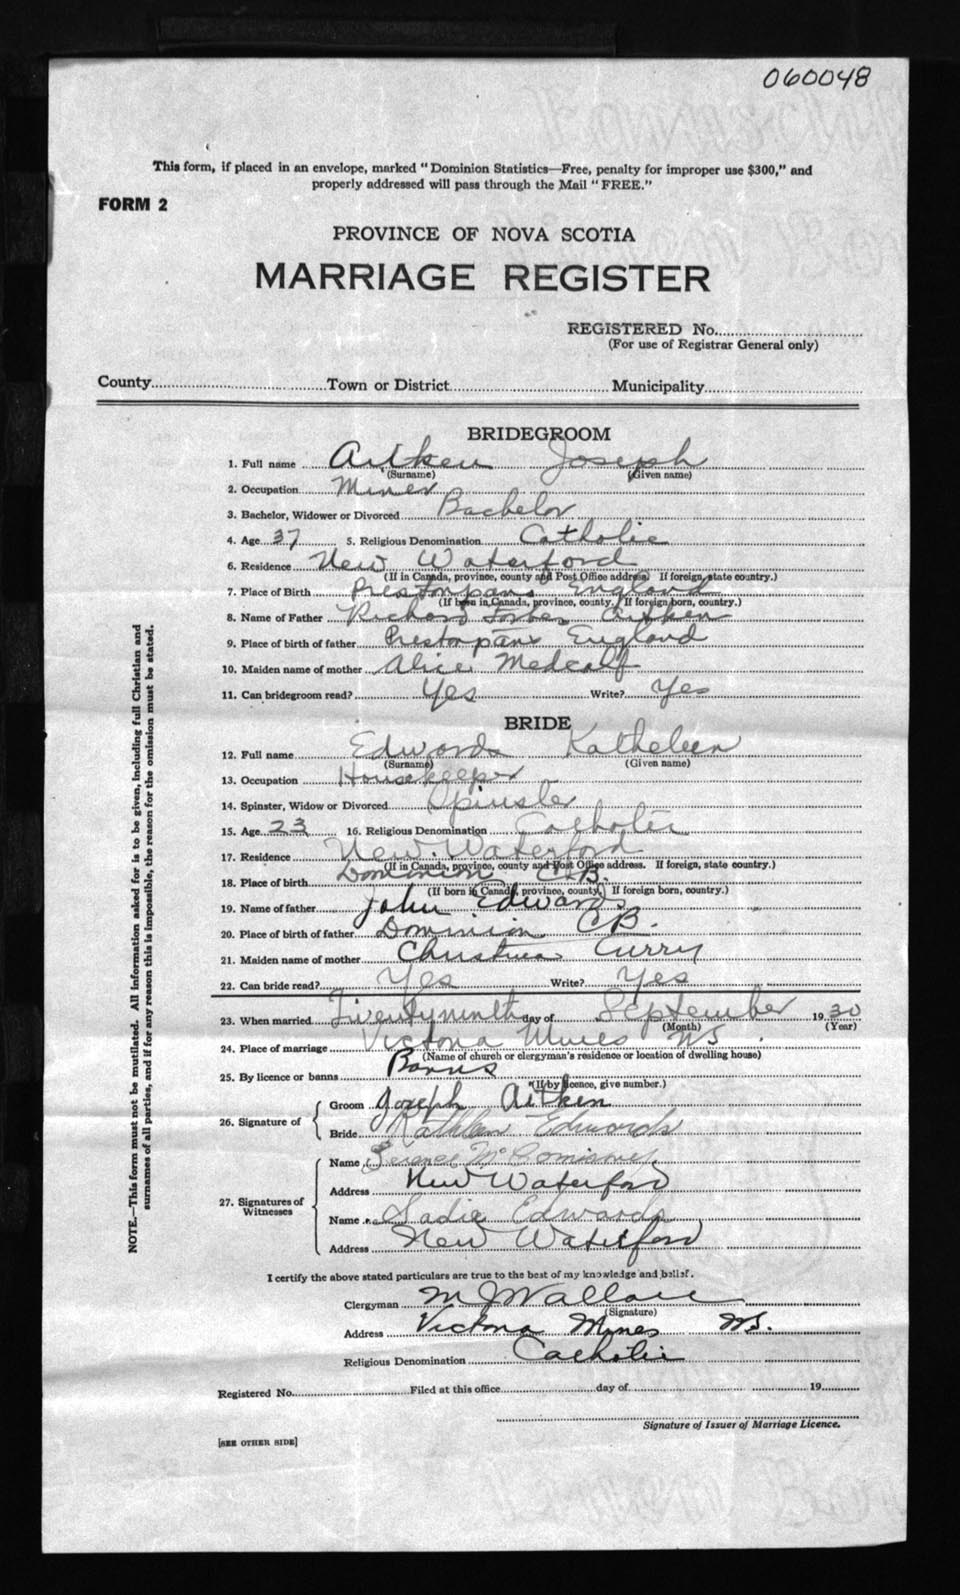 060048
This form, if placed in an envelope, marked "Dominion Statistics—Free, penalty for improper use $300," and
properly addressed will pass through the Mail "FREE."
FORM 2
PROVINCE OF NOVA SCOTIA
MARRIAGE REGISTER
REGISTERED No.
(For use of Registrar General only)
County Town or District Municipality
BRIDEGROOM
1. Full name Aitken Joseph
(Surname) (Given name)
2. Occupation Miner
3. Bachelor, Widower or Divorced Bachelor
4. Age 37 5. Religious Denomination Catholic
6. Residence New Waterford
(If in Canada, province, county and Post Office address. If foreign, state country.)
7. Place of Birth Prestonpans England
(If born in Canada, province, county. If foreign born, country.)
8. Name of Father Richard Forbes Aitken
9. Place of birth of father Prestonpans England
10. Maiden name of mother Alice Medcalf
11. Can bridegroom read? Yes Write? Yes
BRIDE
12. Full name Edwards Katheleen
(Surname) (Given name)
13. Occupation Housekeeper
14. Spinster, Widow or Divorced Spinster
15. Age 23 16. Religious Denomination Catholic
17. Residence New Waterford
(If in Canada, province, county and Post Office address. If foreign, state country.)
18. Place of birth Dominion C.B.
(If born in Canada, province, county. If foreign born, country.)
19. Name of father John Edwards
20. Place of birth of father Dominion CB.
21. Maiden name of mother Christina Curry
22. Can bride read? Yes Write? Yes
23. When married Twentyninth day of September 1930
(Month) (Year)
24. Place of marriage Victoria Mines NS
(Name of church or clergyman's residence or location of dwelling house)
25. By licence or banns Banns
(If by licence, give number.)
26. Signature of Groom Joseph Aitken
Bride Kathleen Edwards
27. Signatures of Witnesses
Name
Address New Waterford
Name Sadie Edwards
Address New Waterford
I certify the above stated particulars are true to the best of my knowledge and belief.
Clergyman M J Wallace
(Signature)
Address Victoria Mines NS.
Religious Denomination Catholic
Registered No. Filed at this office day of 19
Signature of Issuer of Marriage Licence.
[SEE OTHER SIDE]
NOTE.—This form must not be mutilated. All information asked for is to be given, including full Christian and
surnames of all parties, and if for any reason this is impossible, the reason for the omission must be stated.